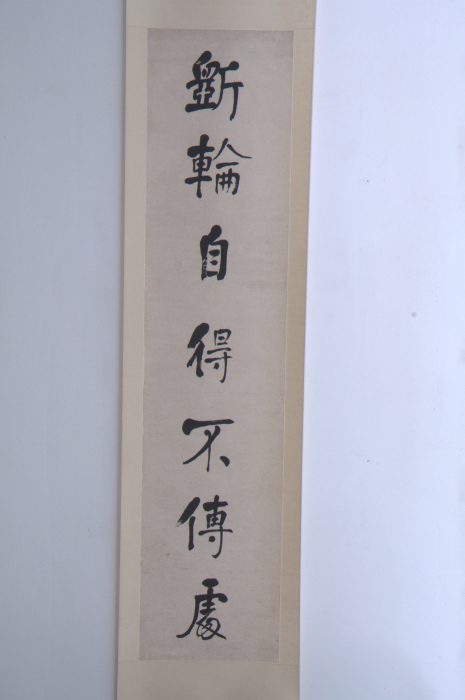 斲輪自得不傳處